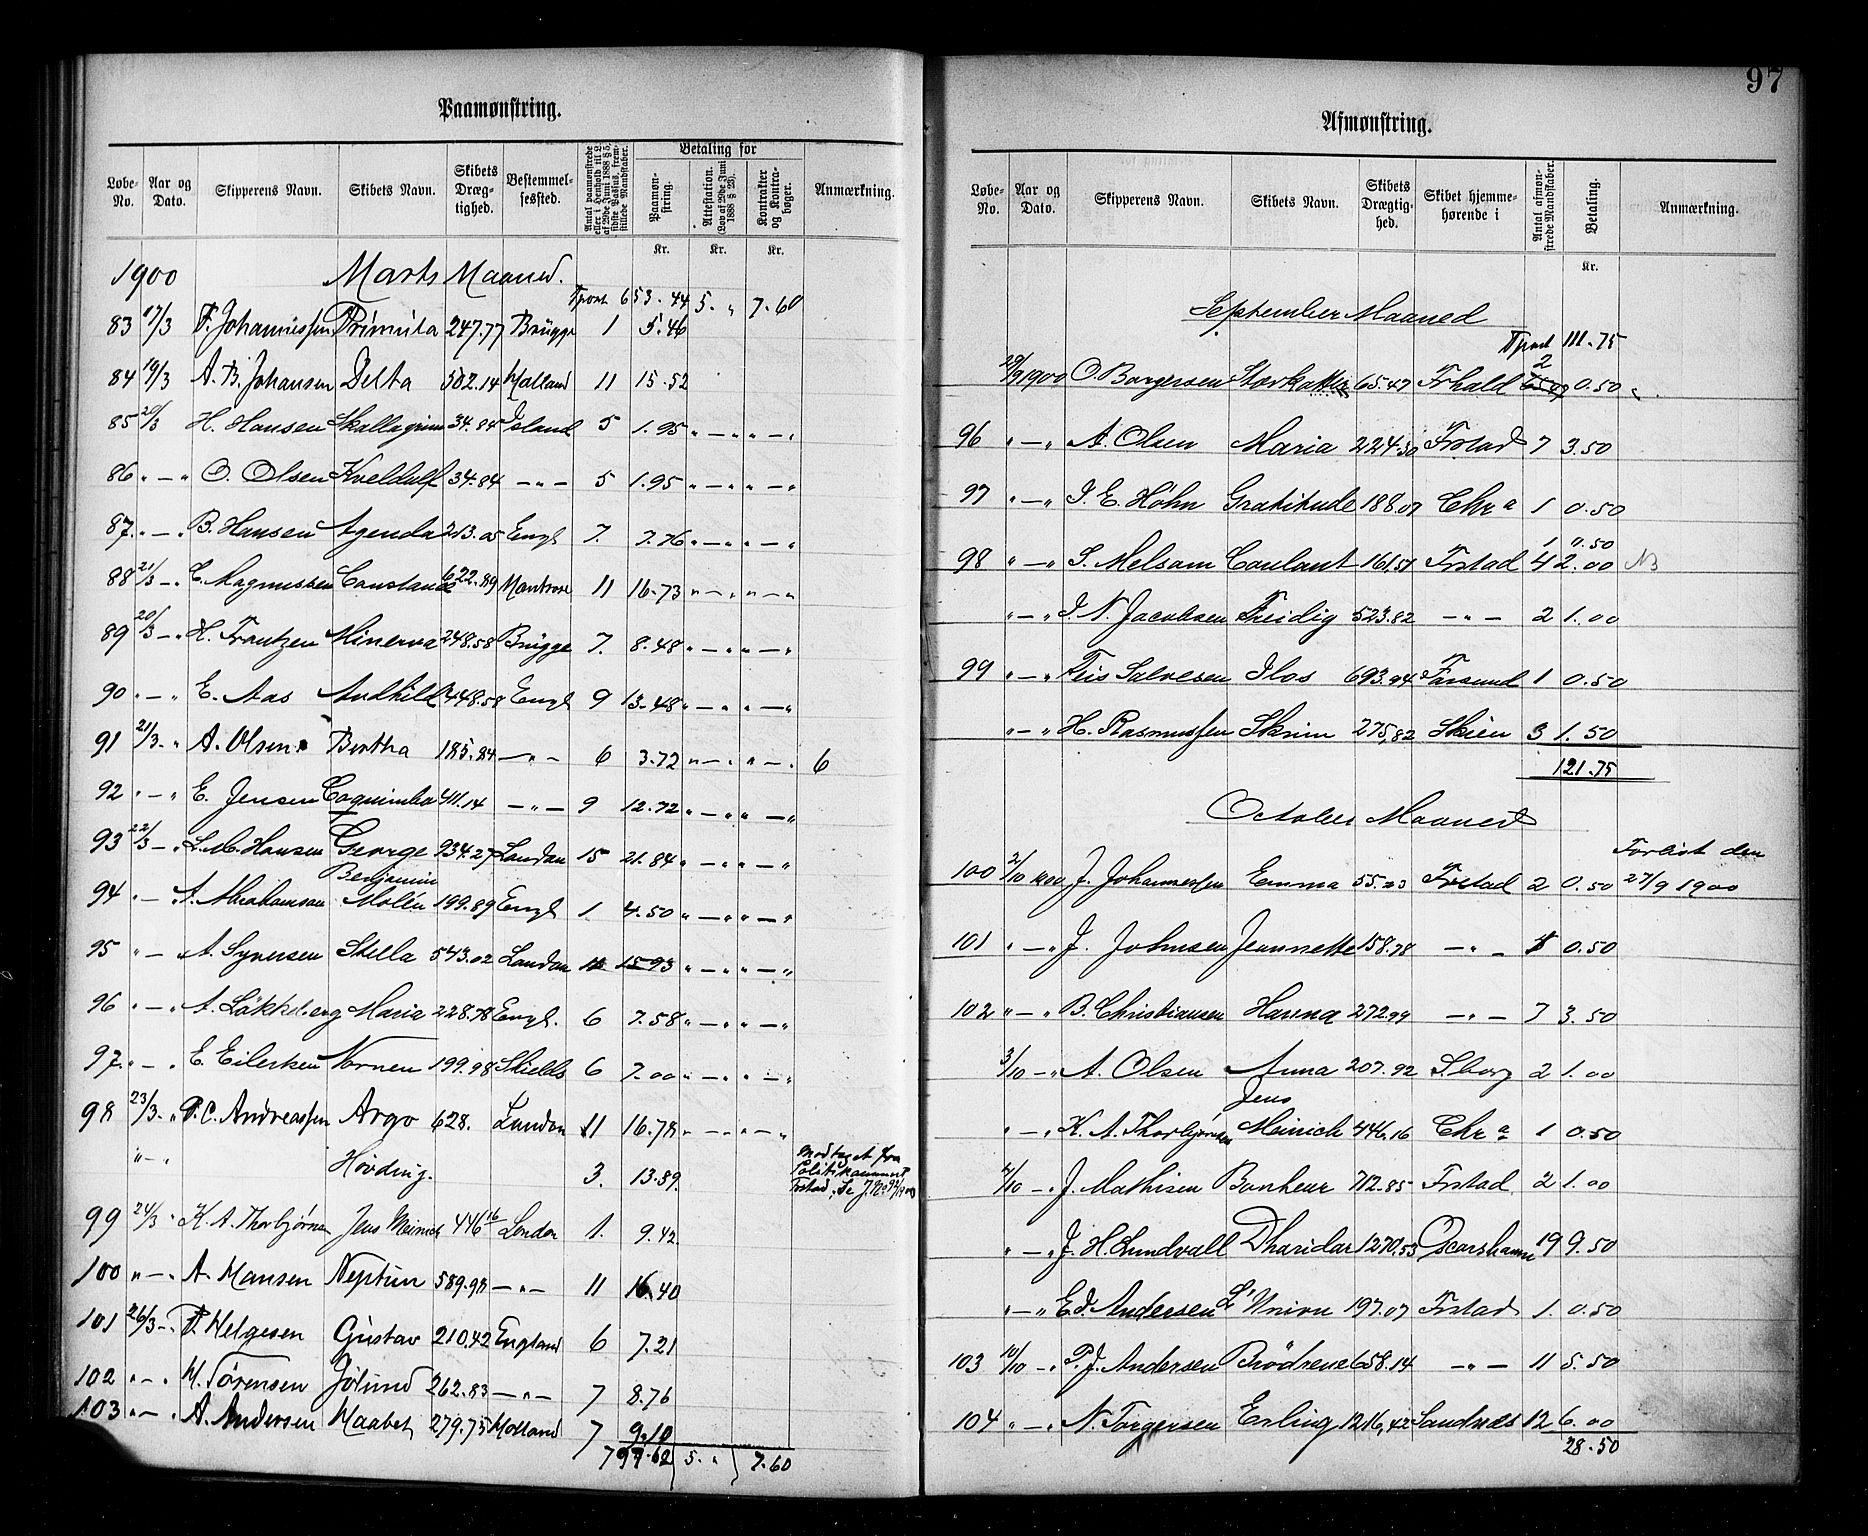 97
Paamønstring.
Løbe-No. Aar og Dato. Skipperens Navn. Skibets Navn. Skibets Dræg-tighed. Bestemmel-sessted. Antal paamønstrede eller i Henhold til L. af 29de Juni 1888 § 5, sidste Passus, frem-stillede Mandskaber. Betaling for Paamøn-string. Attestation. (Lov af 29de Juni 1888 § 23). Kontrakter og Kontra-bøger. Anmærkning.
Kr. Kr. Kr.
1900 Marts Maaned.
Tport 653.44 5. " 7.60
83 17/3 P. Johannessen Primula 247.77 Brügge 1 5.46
84 19/3 A. B. Johansen Delta 502.14 Holland 11 15.52
85 20/3 H. Hansen Skallagrim 34.84 Island 5 1.95 " — " " — "
86 " — " O. Olsen Kveldulf 34.84 — " — 5 1.95 " — " " — "
87. " — " B. Hansen Agenda 213.05 Engl 7. 7.76 " — " " — "
88 21/3 — " C. Magnussen Constance 622.89 Montrose 11 16.73 " — " " — "
89 20/3 — " H. Frantzen Minerva 248.58 Brügge 7. 8.48 " — " " — "
90 " — " E. Aas Andhild 448.58 Engl 9 13.48 " — " " — "
91 21/3. " A. Olsen Bertha 185.84 — " — 6 3.72 " — " " — " 6
92 " — " E. Jensen Coquimbo 411.14 — " — 9 12.72 " — " " — "
93 22/3 — " L. M. Hansen George 934.27 London 15 21.84 " — " " — "
Benjamin
94 " — " A. Abrahamson Molén 199.89 Engl 1 4.50 " — " " — "
95 " — " A. Syversen Stella 543.02 London 15 93 " — " " — "
96 " — " A. Løkkeberg Maria 228.78 Engl. 6 7.58 " — " " — "
97. " — " E. Eilertsen Nornen 199.98 Shields 6 7.00 " — " " — "
98 23/3. " P. C. Andreassen Argo 628. London 11 16.78 " — " " — "
" — " Høvding. 3. 13.89. Modtaget fra Politikammeret Frstad, Se J. No
99 24/3 " K. A. Thorbjørnsen Jens Meinich 446 16 London 1. 9.42.
100 " — " A. Hansen Neptun 589.98 — " — 11 16.40
101 26/3 — " P. Helgesen Gustav 210.42 England 6 7.21
102 " — " M. Sørensen Jølund 262.83 — " — 7 8.76
103 " — " A. Andersen Haabet 279.75 Holland 7 9.10
797.62 5. " 7.60
Afmønstring.
Løbe-No. Aar og Dato. Skipperens Navn. Skibets Navn. Skibets Drægtig-hed. Skibet hjemme-hørende i Antal afmøn-strede Mandskaber. Betaling. Anmærkning.
Kr.
September Maaned
Tport 111.75
29/9 1900 O. Borgersen Stærkodder 65.47 Frhald 2 0.50
96 " — " A. Olsen Maria 224.30 Frstad 7 3.50
97 " — " I. E. Høhn Gratitude 188.07 Chra 1 0.50
1 0.50
98 " — " S. Melsom Coulant 161.51 Frstad 4 2.00 NB
" — " I. N. Jacobsen Freidig 523.82 — " — 2 1.00
99 " — " Fris Salvesen Ilos 693.94 Farsund 1 0.50
" — " H. Rasmussen Skrim 275,82 Skien 3 1.50
121.75
October Maaned
Forlist den
100 2/10 1900 J. Johannessen Emma 55.23 Frstad 2 0.50 27/9 1900
101 " — " J. Johnsen Jeannette 158.78 — " — 1 0.50
102 " — " B. Christiansen Hanna 272.99 — " — 7 3.50
3/10 — " A. Olsen Anna 207.92 S.borg 2 1.00
Jens
" — " K. A. Thorbjørnsen Meinich 446.16 Chra 1 0.50
4/10 — " J. Mathisen Bonheur 712.85 Frstad 2 1.00
" — " J. H. Lundvall Dharidar 1270.53 Oscarshamn 19 9.50
" — " Ed. Andersen L'Union 197.07 Frstad 1. 0.50
103 10/10 — " P. J. Andersen Brödrene 658.14 — " — 11 5.50
104 " — " N. Torgersen Erling 1216,42 Sandnæs 12 6.00
28.50